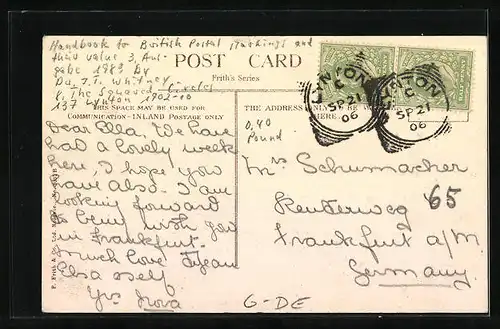 Handbook to British Postal Markings and
their value 3. Aus-
gabe 1983 by
Dr. J.T. Whitney
P. The Squared Circles
137 Lynton 1902-10
POST CARD
Frith's Series
THIS SPACE MAY BE USED FOR
COMMUNICATION—INLAND POSTAGE ONLY
THE ADDRESS ONLY
HERE.
LYNTON
C
SP 21
06
LYNTON
C
SP 21
06
0,40
Pound
Dear Ella, We have
had a lovely week
here, I hope you
have also. I am
looking forward
to being with you
in Frankfurt.
So much love
Elsa & self
Yrs Nora
Mrs Schumacher
Reuterweg 65
Frankfurt a/M.
Germany
G-DE
F. Frith & Co. Ltd.